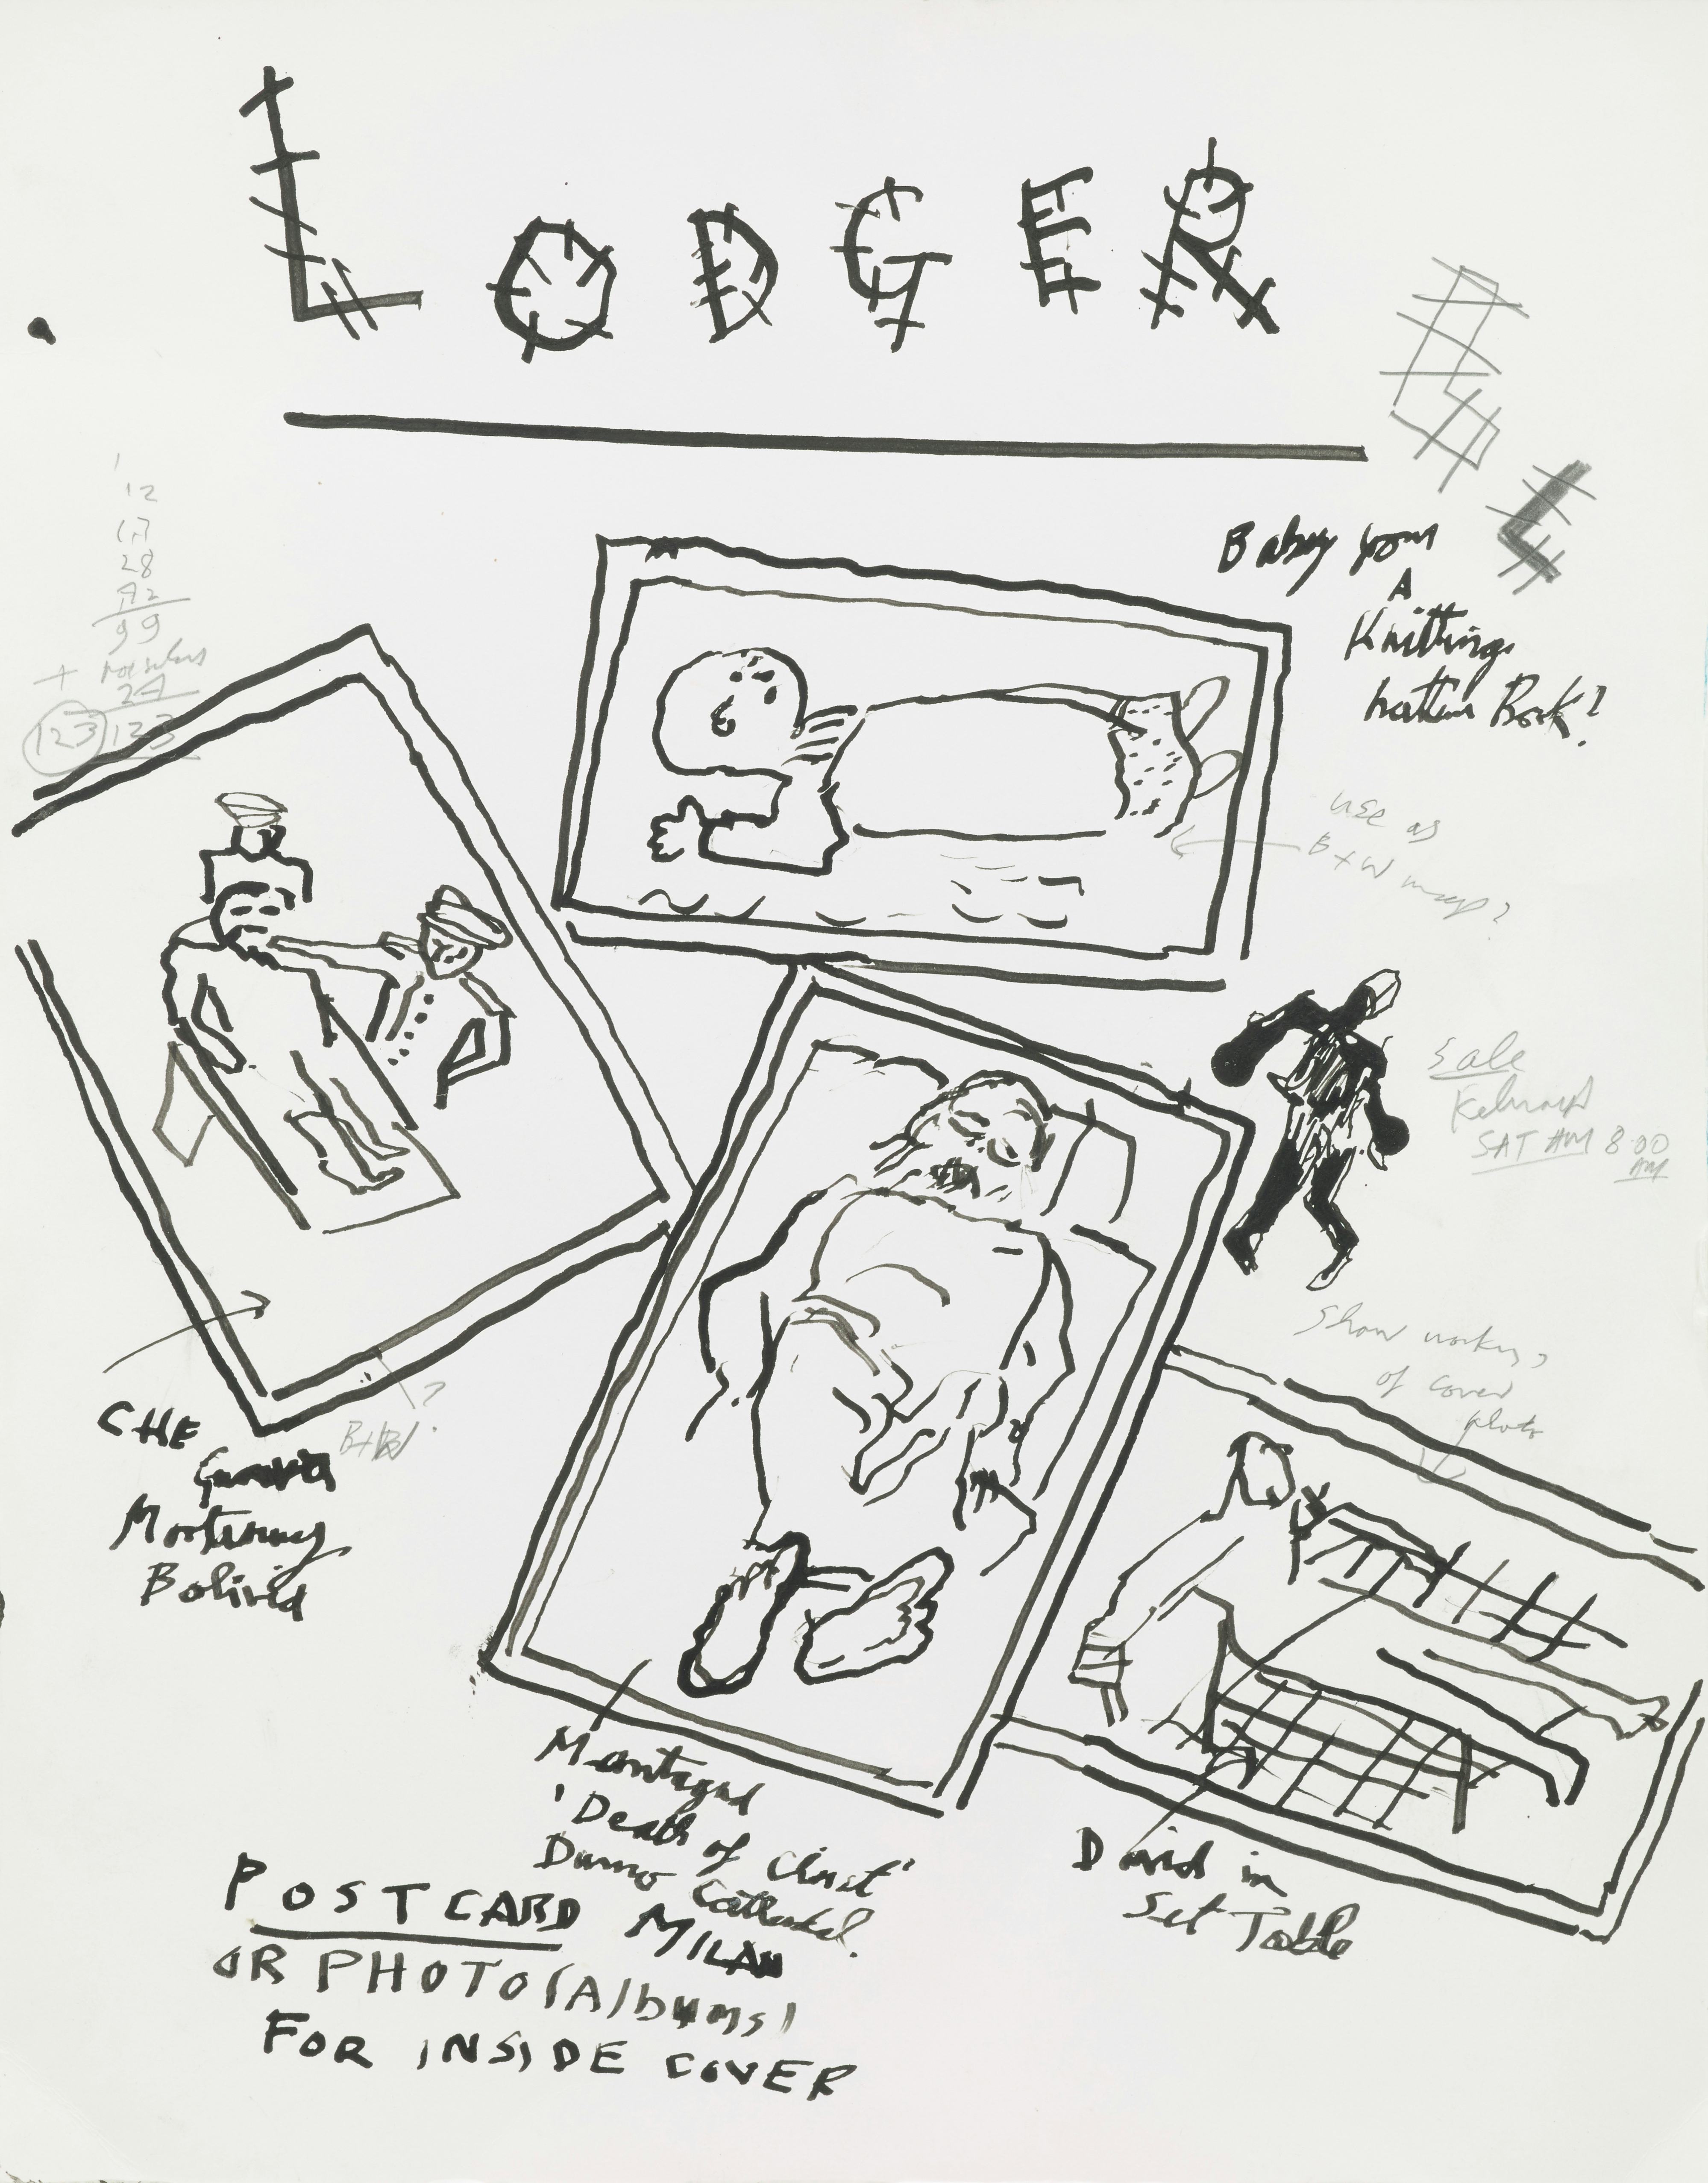 LODGER
12
28
99
+
24
123 123
Baby from
A
Knitting
Pattern Book?
use as
B+W
Sale
SAT AM 8:00
AM
Show
of cover
photo
CHE
Mortuary
Bolivia
B+W?
Mantegna
'Death of Christ'
Duomo Cathedral.
MILAN
David in
Set Table
POSTCARD
OR PHOTO (Albums)
FOR INSIDE COVER